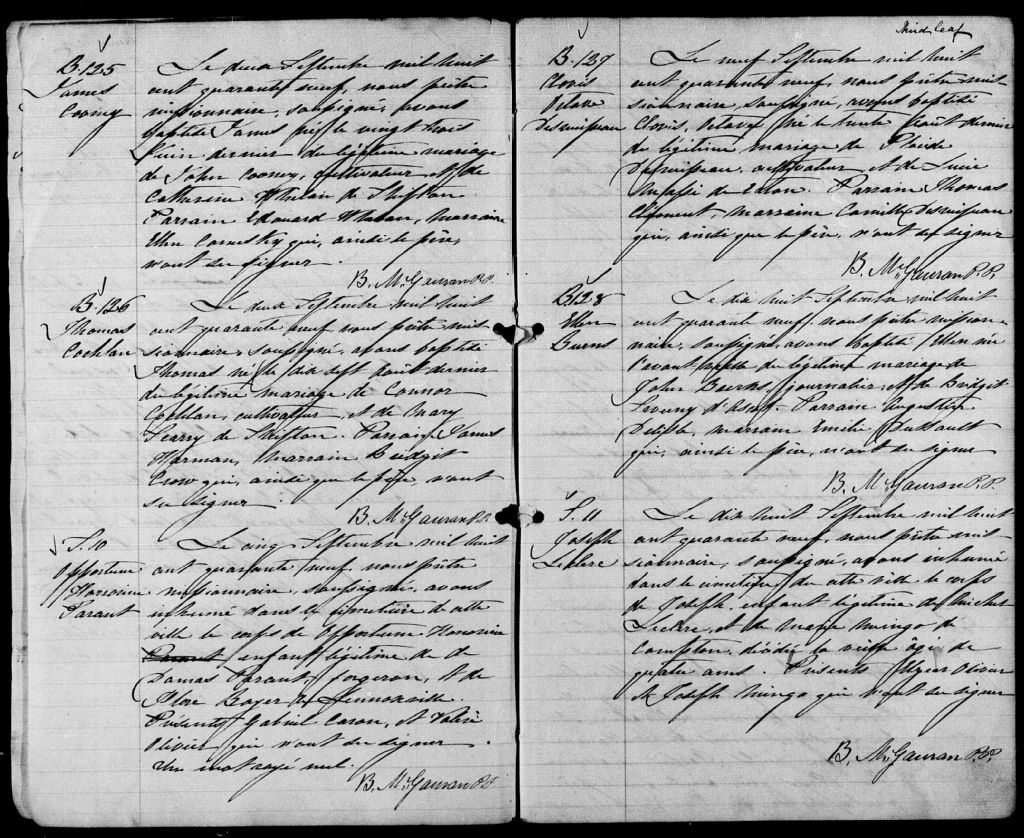 B. 125
James
Cooney
Le deux Septembre mil huit
cent quarante neuf, nous prêtre
missionnaire, soussigné, avons
baptisé James né le vingt trois
Juin dernier du légitime mariage
de John Cooney, cultivateur et de
Catherine Whelan de Shifton.
Parrain Edouard Whelan, marraine
Ellen qui, ainsi le père,
n'ont su signer.
B. McGauran P.P.
B. 126
Thomas
Cochlan
Le deux Septembre mil huit
cent quarante neuf, nous prêtre mis
sionnaire, soussigné, avons baptisé
Thomas né le dix sept août dernier
du légitime mariage de Connor
Cochlan, cultivateur, et de Mary
Learry de Shifton. Parrain James
Harman, Marraine Bridgit
Crow qui, ainsi que le père n'ont
su signer.
B. McGauran P.P.
S. 10
Opportune
Honorine
Parant
Le cinq Septembre mil huit
cent quarante neuf, nous prêtre
missionnaire, soussigné, avons
inhumé dans le cimetière de cette
ville le corps de Opportune Honorine
Parant enfant légitime de
Damas Parant, forgeron, et de
Flore Boyer de Lennoxville.
Présents Gabriel Caron, et
Olivier qui n'ont su signer.
Un mot rayé nul.
B. McGauran P.P.
Third leaf
B. 127
Clovis
Octave
Desruisseau
Le neuf Septembre mil huit
cent quarante neuf, nous prêtre mis
sionnaire, soussigné, avons baptisé
Clovis, Octave né le trente août dernier
du légitime mariage de Placide
Desruisseau, cultivateur et de Lucie
de Eaton. Parrain Thomas
Clément, marraine Camille Desruisseau
qui, ainsi que le père, n'ont su signer
B. McGauran P.P.
B 128
Ellen
Burns
Le dix huit Septembre mil huit
cent quarante neuf, nous prêtre mission-
naire, soussigné, avons baptisé Ellen née
l'avant veille du légitime mariage de
John Burns, journalier et de Bridgit
d'Ascot. Parrain Augustin
Delisle, marraine Emilie Dussault
qui, ainsi le père, n'ont su signer
B. McGauran P.P.
S. 11
Joseph
Leclere
Le dix huit Septembre mil huit
cent quarante neuf, nous prêtre mis-
sionnaire, soussigné, avons inhumé
dans le cimetière de cette ville le corps
de Joseph, enfant légitime de Michel
Leclere, et de Marie Mingo de
Compton, décédé la veille âgé de
quatre ans. Présents Olivier
et Joseph Mingo qui n'ont su signer
B. McGauran P.P.